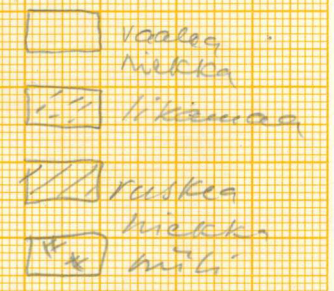 vaalea
hiekka
likamaa
ruskea
hiekka
hiili